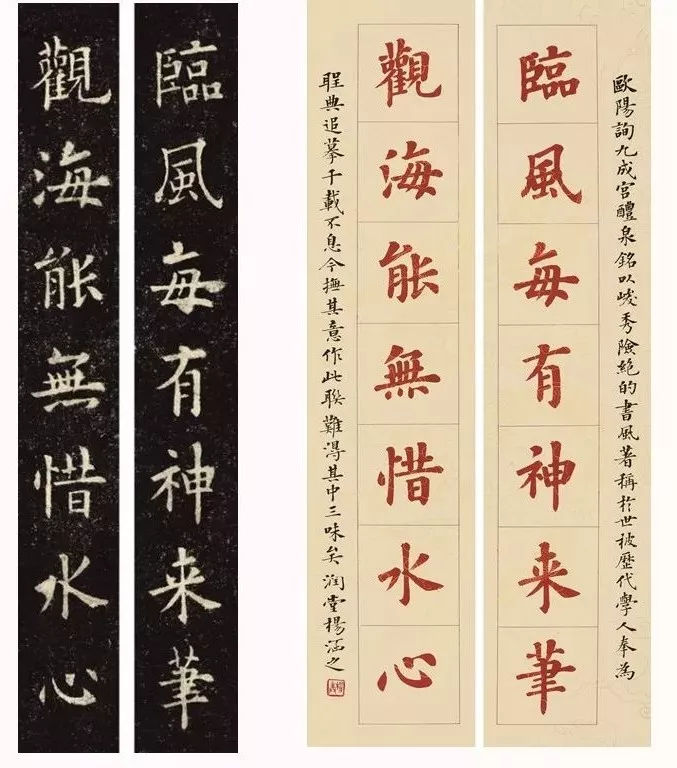 歐陽詢九成宮醴泉銘以峻秀險絶的書風著稱於世被歷代學人奉為
臨風每有神来筆
觀海能無惜水心
程典追摹千載不息今撫其意作此聯難淂其中三味矣 润堂楊涵之
臨風每有神来筆
觀海能無惜水心